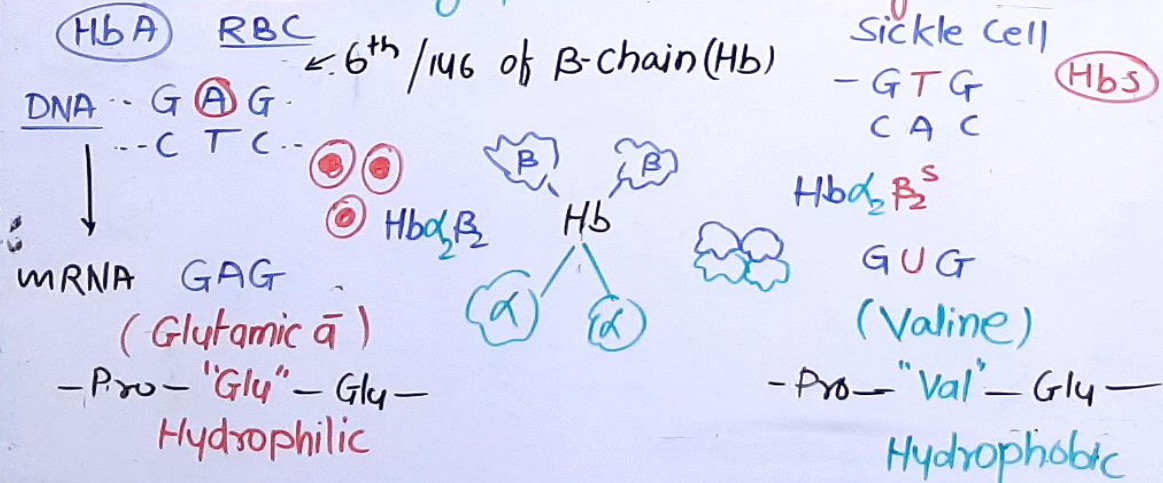 HbA RBC
← 6th/146 of β-chain (Hb)
DNA -- G A G -
---C T C--
mRNA GAG
(Glutamic ā)
-Pro-"Gly"-Gly-
Hydrophilic
β β
Hbα₂β₂ Hb
α α
Sickle Cell
- G T G HbS
C A C
Hbα₂β₂ˢ
GUG
(Valine)
-Pro-"Val"-Gly-
Hydrophobic